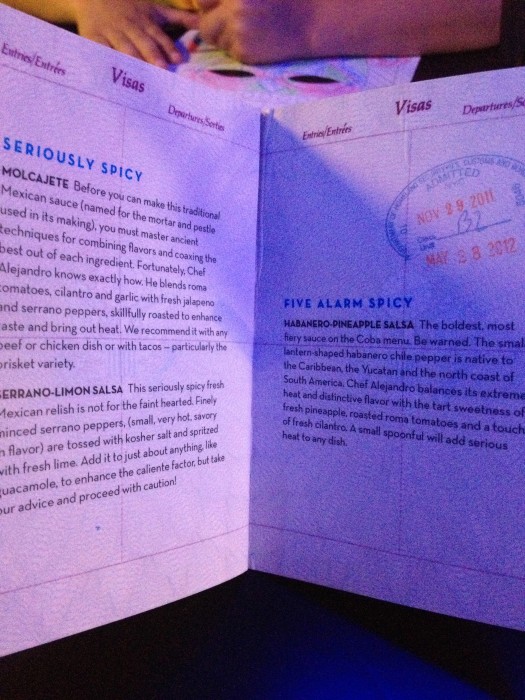 Entries/Entrées
Visas
Departures/Sorties
SERIOUSLY SPICY
MOLCAJETE Before you can make this traditional
Mexican sauce (named for the mortar and pestle
used in its making), you must master ancient
techniques for combining flavors and coaxing the
best out of each ingredient. Fortunately, Chef
Alejandro knows exactly how. He blends roma
tomatoes, cilantro and garlic with fresh jalapeno
and serrano peppers, skillfully roasted to enhance
taste and bring out heat. We recommend it with any
beef or chicken dish or with tacos – particularly the
brisket variety.
SERRANO-LIMON SALSA This seriously spicy fresh
Mexican relish is not for the faint hearted. Finely
minced serrano peppers, (small, very hot, savory
in flavor) are tossed with kosher salt and spritzed
with fresh lime. Add it to just about anything, like
guacamole, to enhance the caliente factor, but take
our advice and proceed with caution!
Entries/Entrées
Visas
Departures/So
ADMITTED
NOV 29 2011
B2
MAY 28 2012
FIVE ALARM SPICY
HABANERO-PINEAPPLE SALSA The boldest, most
fiery sauce on the Coba menu. Be warned. The small
lantern-shaped habanero chile pepper is native to
the Caribbean, the Yucatan and the north coast of
South America. Chef Alejandro balances its extreme
heat and distinctive flavor with the tart sweetness of
fresh pineapple, roasted roma tomatoes and a touch
of fresh cilantro. A small spoonful will add serious
heat to any dish.